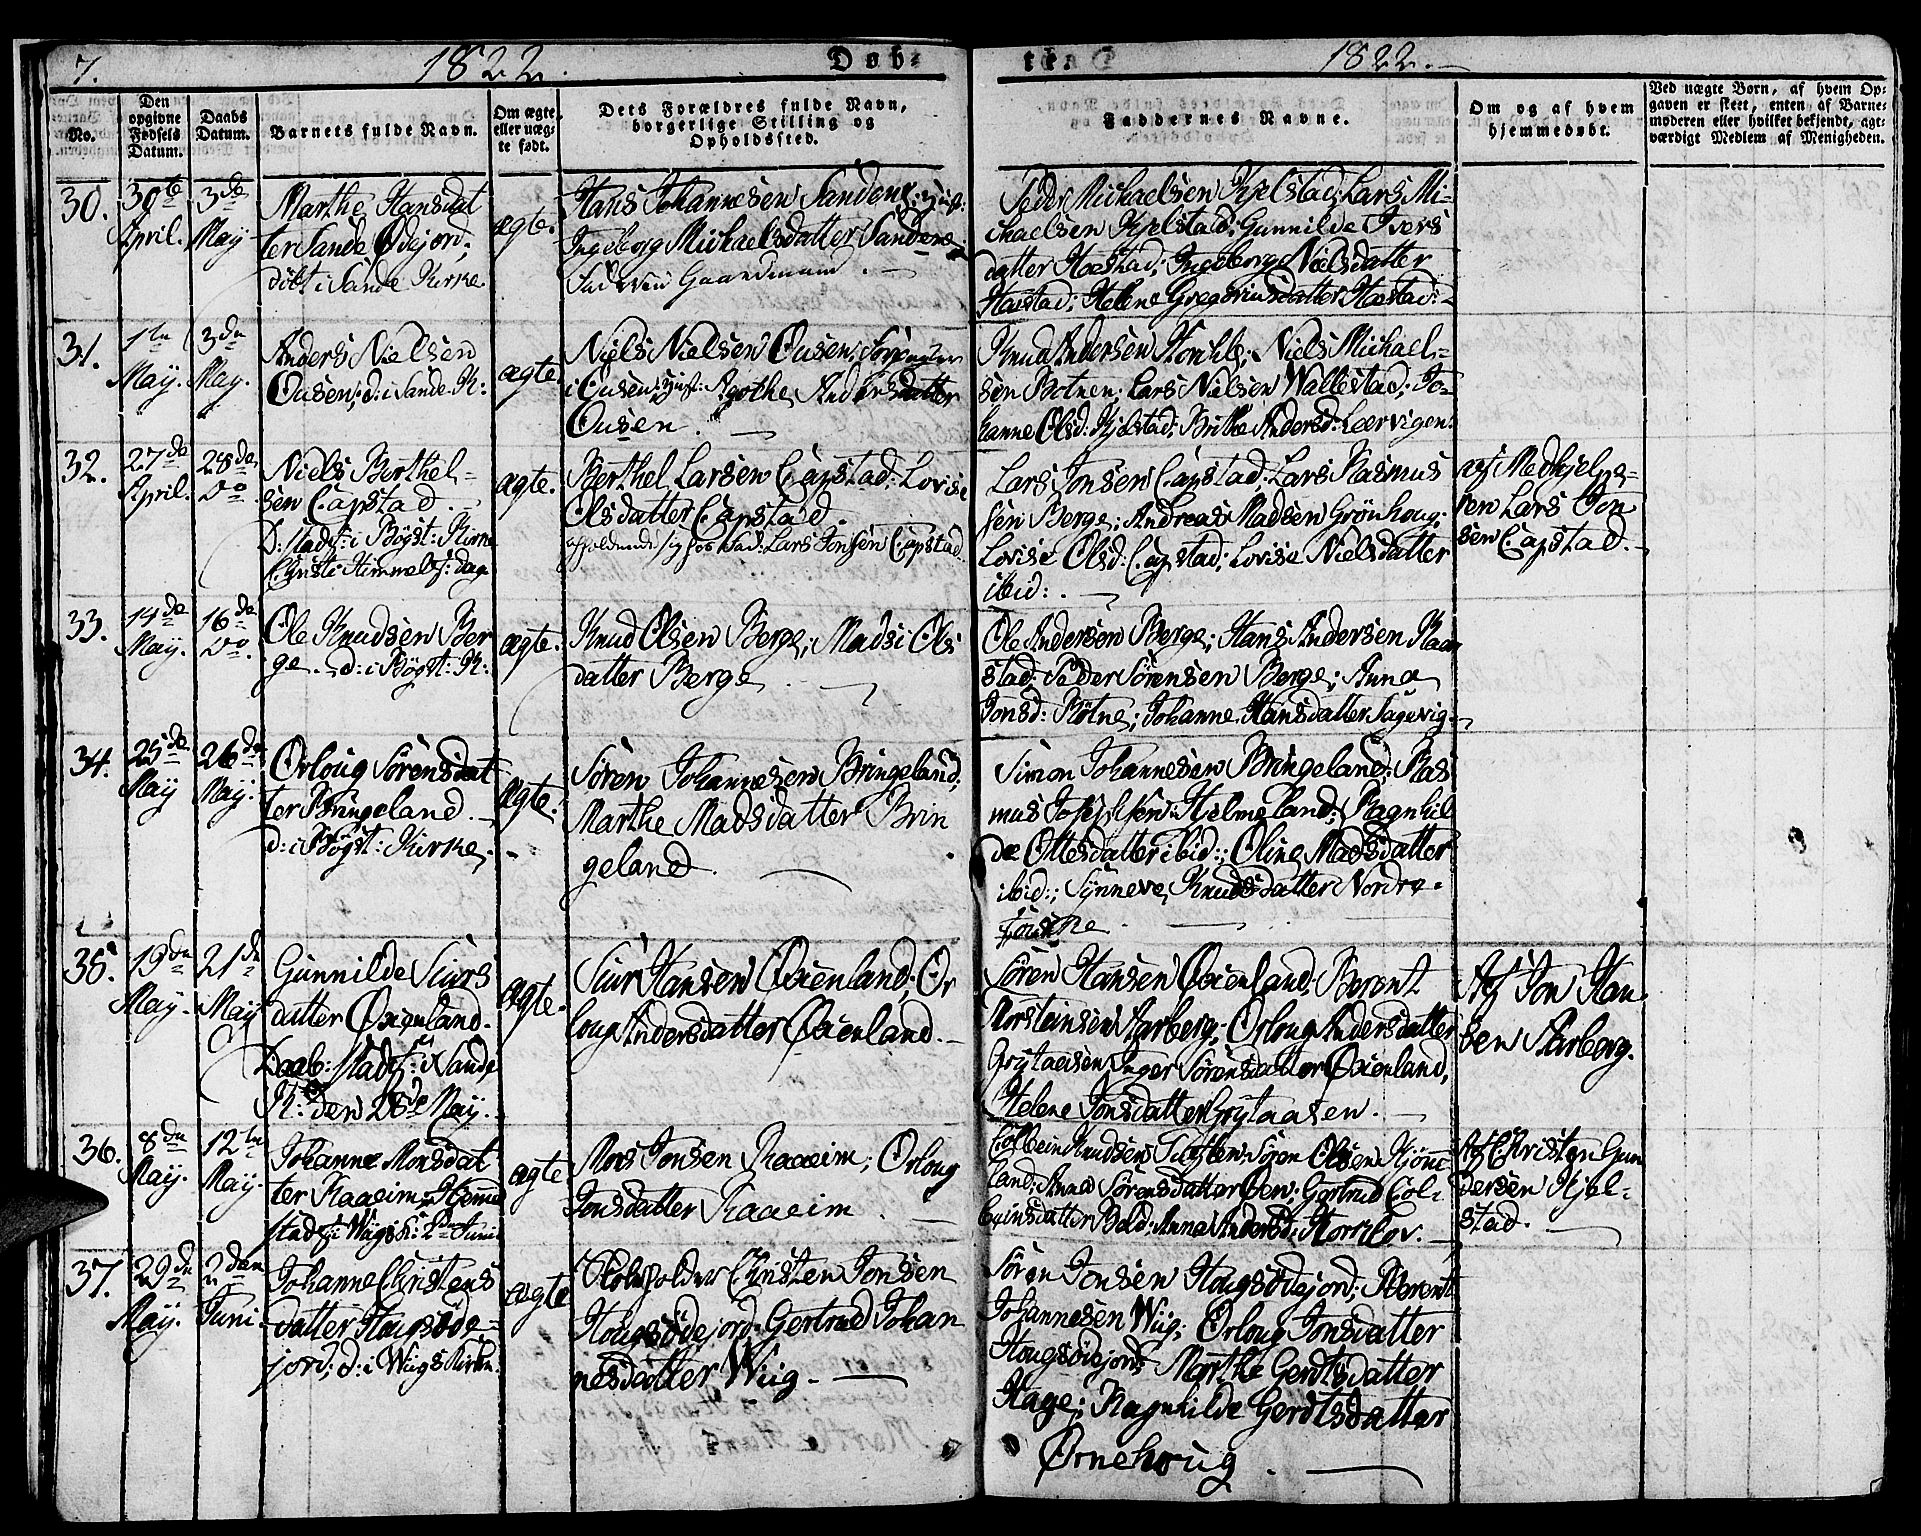 7. 1822. Døb-
te. 1822.
No.
Den opgivne Fødsels Datum.
Daabs Datum.
Barnets fulde Navn.
Om ægte, eller uæg- te født.
Dets Forældres fulde Navn, borgerlige Stilling og Opholdssted.
Faddernes Navne.
Om og af hvem hjemmedøbt.
Ved uægte Børn, af hvem Op- gaven er skeet, enten af Barne- moderen eller hvilket bekjendt, agt- værdigt Medlem af Menigheden.
30.
30te
April.
3de
May
Marthe Hansdat
ter Sande Ødejord;
döbt i Sande Kirke.
ægte.
Hans Johannesen Sanden
Ingeborg Michaelsdatter Sandene
Gaardmand.
Peder Michaelsen Kjelstad; Lars Mi-
chaelsen Kjelstad; Gunnilde Ivers
datter Hæstad; Ingeborg Nielsdatter
Hæstad; Helene Gregoriusdatter Hæstad;
31.
1ste
May.
3de
May.
Anders Nielsen
Ousen; d: i Sande K:
ægte.
Niels Nielsen Ousen;
i Ousen; Agothe Andersdatter
Ousen.
Knud Andersen Horkle; Niels Michael-
sen Botnen; Lars Nielsen Wallestad; Jo-
hanne Olsd: Kjelstad; Brithe Andersd: Leervigen.
32.
27de
April.
28de
Do
Niels Berthel-
sen Capstad.
D: stadf: i Bögst: Kirke
Christi Himmelf: dag.
ægte.
Berthel Larsen Capstad; Lovise
Olsdatter Capstad.
opholdende sig hos Lars Jonsen Capstad
Lars Jonsen Capstad; Lars Rasmus
sen Berge; Andreas Madsen Grönhoug;
Lovise Olsd: Capstad; Lovise Nielsdatter
ibid:.
af Medhjelpe-
ren Lars Jon
sen Capstad.
33.
14de
May.
16de
Do.
Ole Knudsen Ber
ge. d: i Bögst: K:
ægte.
Knud Olsen Berge; Madsi Ols
datter Berge
Ole Andersen Berge; Hans Andersen Raan
stad; Peder Sörensen Berge; Anna
Jonsd: Rötne; Johanne Hansdatter Sagevig
34.
25de
May
26de
May.
Orloug Sörensdat
ter Bringeland.
d: i Bögst: Kirke,
ægte.
Sören Johannesen Bringeland;
Marthe Madsdatter Brin
geland.
Simon Johannesen Bringeland; Ras
mus Josephsen Hjelmeland; Ragnhil
de Ottesdatter ibid:; Oline Madsdatter
ibid:; Synneve Knudsdatter Nordre-
35.
19de
May.
21de
May
Gunnilde Siurs
datter Øxenland.
Daab: stadf: i Sande
K: den 28de May.
ægte.
Siur Hansen Øxenland; Or
loug Andersdatter Øxenland.
Sören Hansen Øxenland; Berent
Morstensen Aarberg; Orloug Andersdatter
Grytaasen; Inger Sörensdatter Øxenland;
Helene Jonsdatter Grytaasen.
Af Jon Han
sen Aarberg.
36.
8de
May.
12te
May.
Johanne Monsdat
ter Raaeim,
stadf: i Wiigs K: 2de Juni
ægte
Mons Jonsen Raaeim; Orloug
Jonsdatter Raaeim.
Colbein Knudsen; Sören Olsen
land; Anna Sörensdatter; Gertrud Col-
beinsdatter; Anna Andersd:
Af Christen Gun
dersen Kjel-
stad.
37.
29de
May.
2den
Juni
Johanne Christens
datter Hougsöde-
jord; d: i Wiigs Kirke.
ægte
Skoleholder Christen Jonsen
Hougsödejord; Gertrud Johan
nesdatter Wiig.
Sören Jonsen Hougsödejord; Berent
Johannesen Wiig; Orloug Jonsdatter
Hougsödejord; Marthe Gerdtsdatter
Hage; Ragnhilde Gerdtsdatter
Ørnehoug.